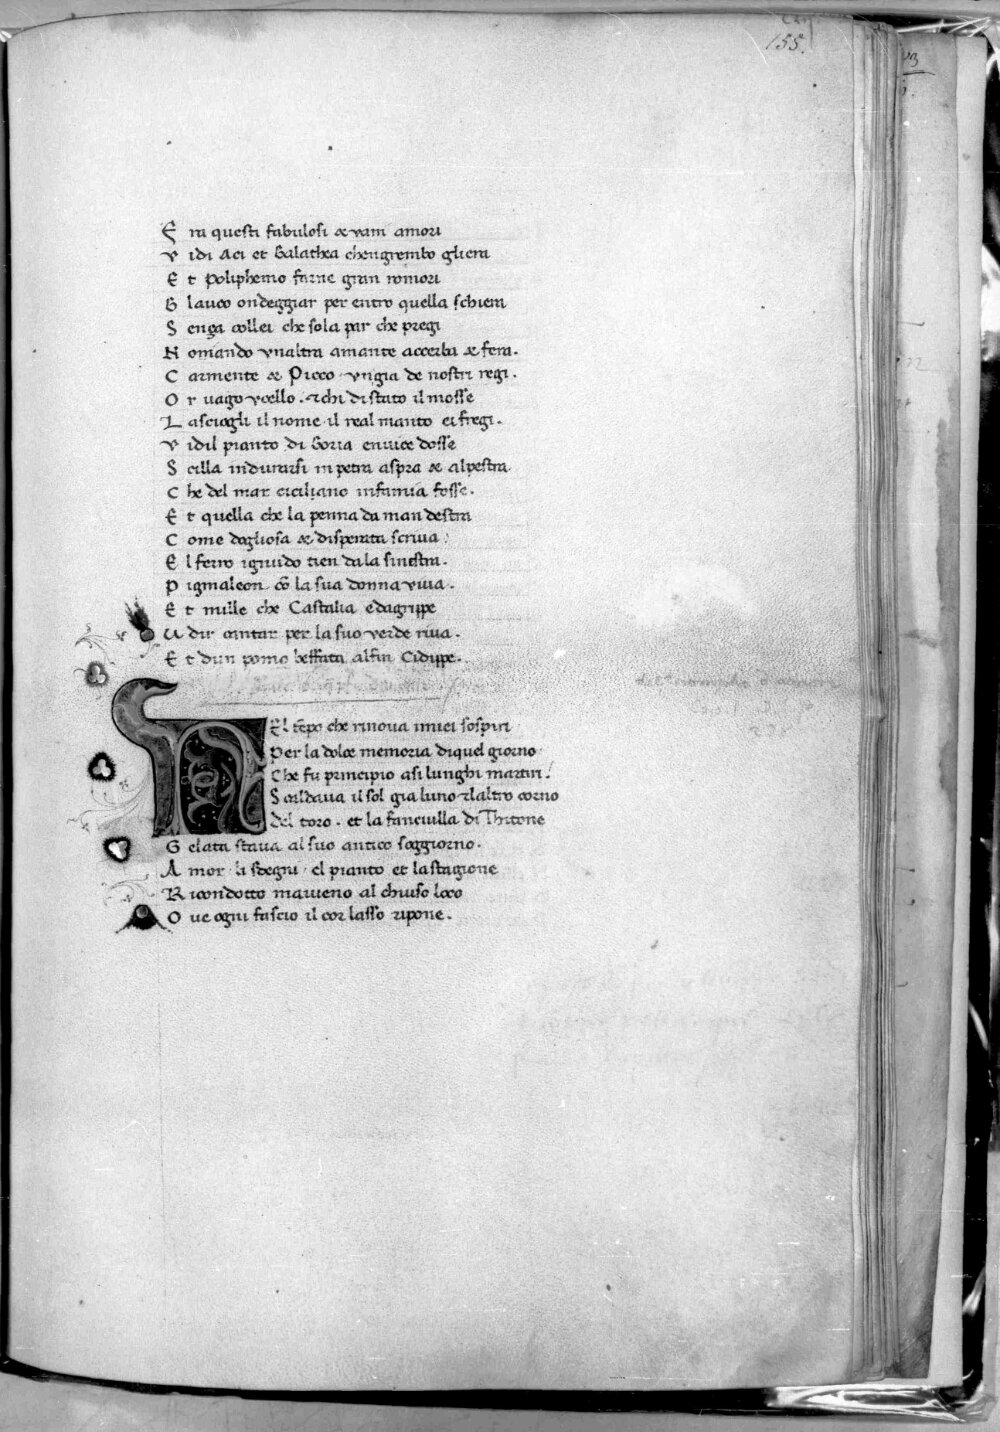 155.
F ra questi fabulosi & vani amori
V idi Aci et Galathea chengrembo gliera
E t poliphemo farne gran romori
G lauco ondeggiar per entro quella schiera
S enza collei che sola par che pregi
N omando vnaltra amante accerba & fera.
C armente & Picco · vngia de nostri regi .
O r uago vcello . & chi di stato il mosse
L asciogli il nome · il real manto ei fregi .
V idil pianto di Goria en vice dosse
S cilla indurarsi in petra aspra & alpestra
C he del mar ciciliano infamia fosse .
E t quella che la penna da man destra
C ome dogliosa & disperata scriua :
E l ferro ignudo tien da la sinestra .
P igmaleon cō la sua donna viua .
E t mille che Castalia edagrippe
U dir cantar per la suo verde riua .
E t dun pomo beffata al fin Cidippe .
NEl tēpo che rinoua imiei sospiri
Per la dolce memoria diquel giorno
Che fu principio asi lunghi martiri !
Scaldaua il sol gia luno & laltro corno
del toro . et la fanciulla di Thitone
G elata staua al suo antico soggiorno .
A mor · li sdegni · el pianto et la stagione
R icondotto maueno al chiuso loco
O ue ogni fascio il cor lasso ripone .